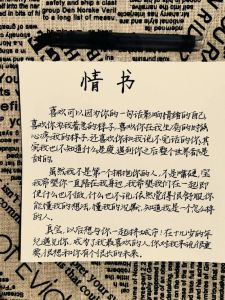 情书
喜欢可以因为你的一句话影响情绪的自己
喜欢你为我着急的样子,喜欢你在我生病的时候
心疼我的样子,还喜欢你和我说不完话的你,其
实我也不知道什么是爱,遇到你之后整个世界都是
甜的。
虽然我不是第一个拥抱你的人,不是嘴硬,宝
我希望你一直陪在我身边,我希望我们在一起即
使什么也不做,什么也不说,依然觉得很舒服,你
能懂我的想法,懂我的沉默,知道我是一个怎么样
的人。
真宝,以后想与你一起择城市,在十几岁的年
纪遇见你,成为了我最喜欢的人,你对我来说很重
要,很想和你有个很长的未来。